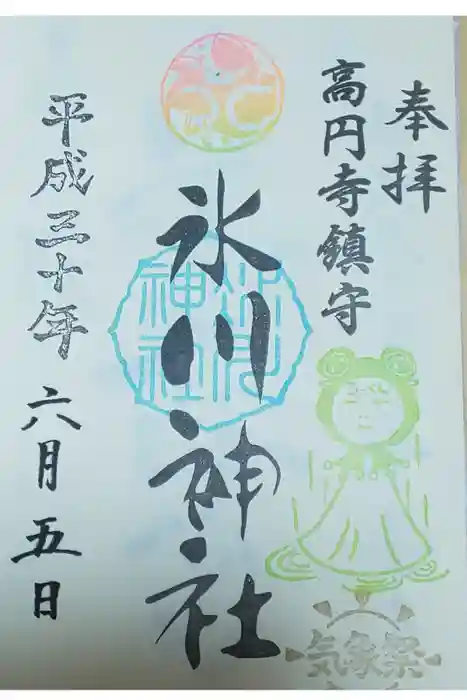 奉拝
高円寺鎮守
氷川神社
氷川神社
気象祭
平成三十年六月五日